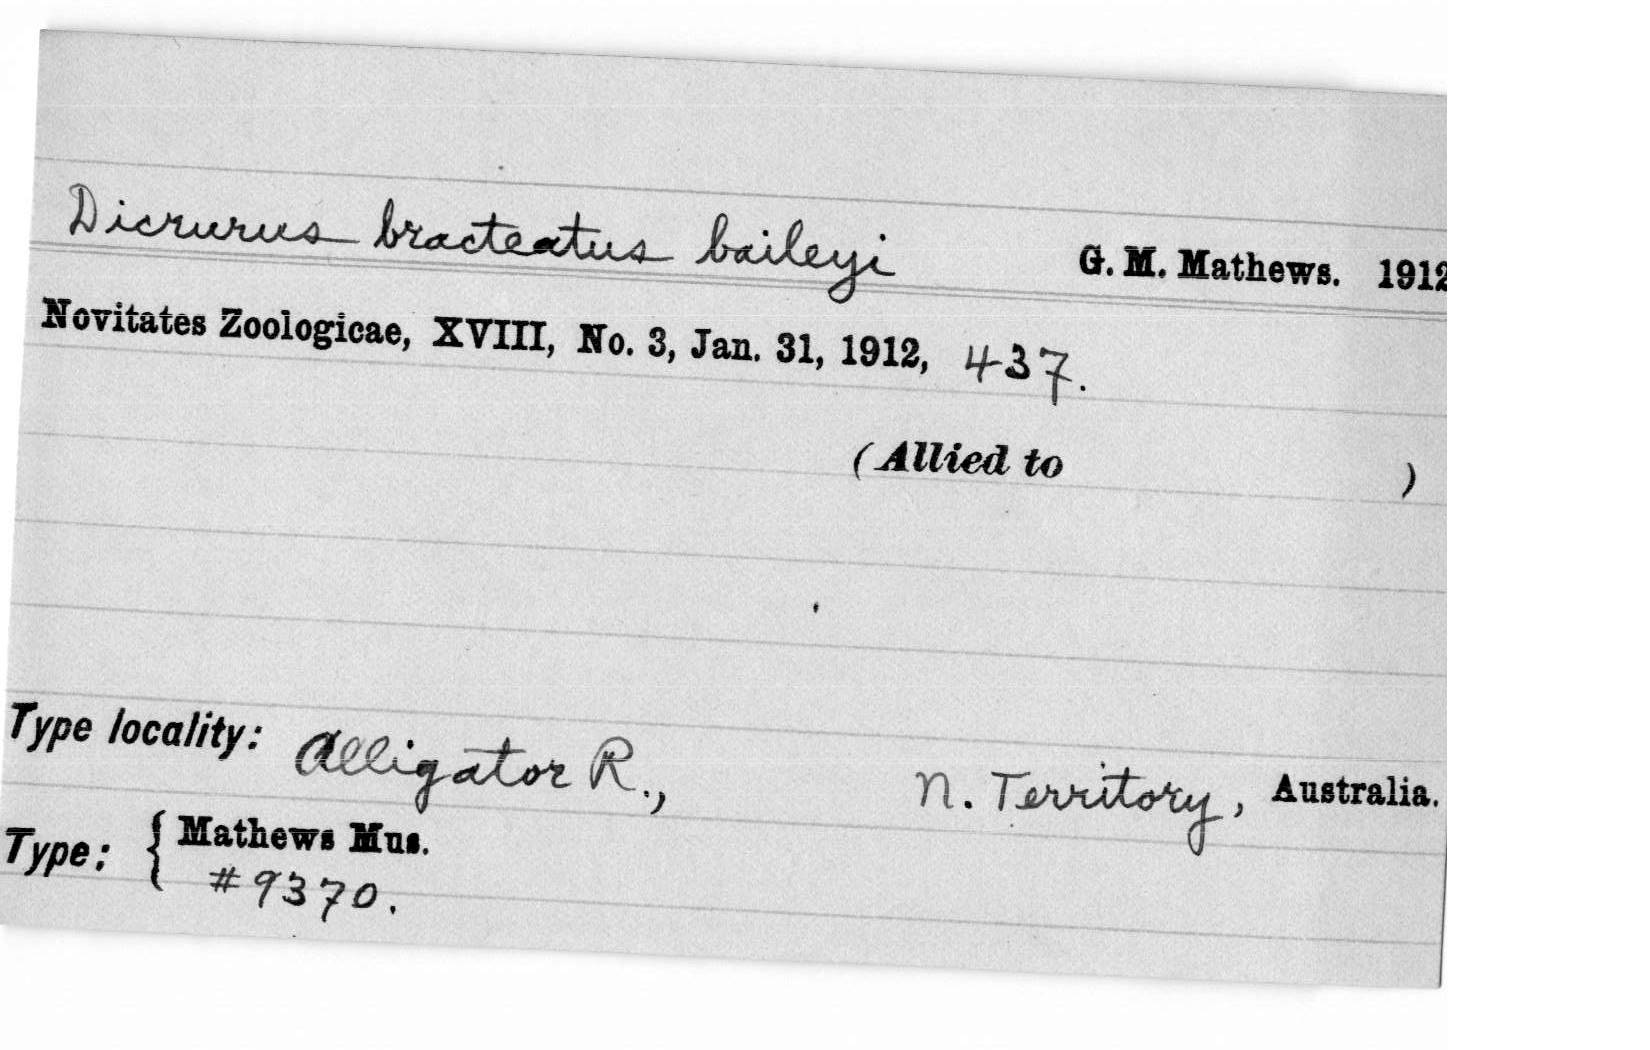 Dicrurus bracteatus baileyi G. M. Mathews. 1912
Novitates Zoologicae, XVIII, No. 3, Jan. 31, 1912, 437.
(Allied to )
Type locality: Alligator R., N. Territory, Australia.
Type: { Mathews Mus.
#9370.